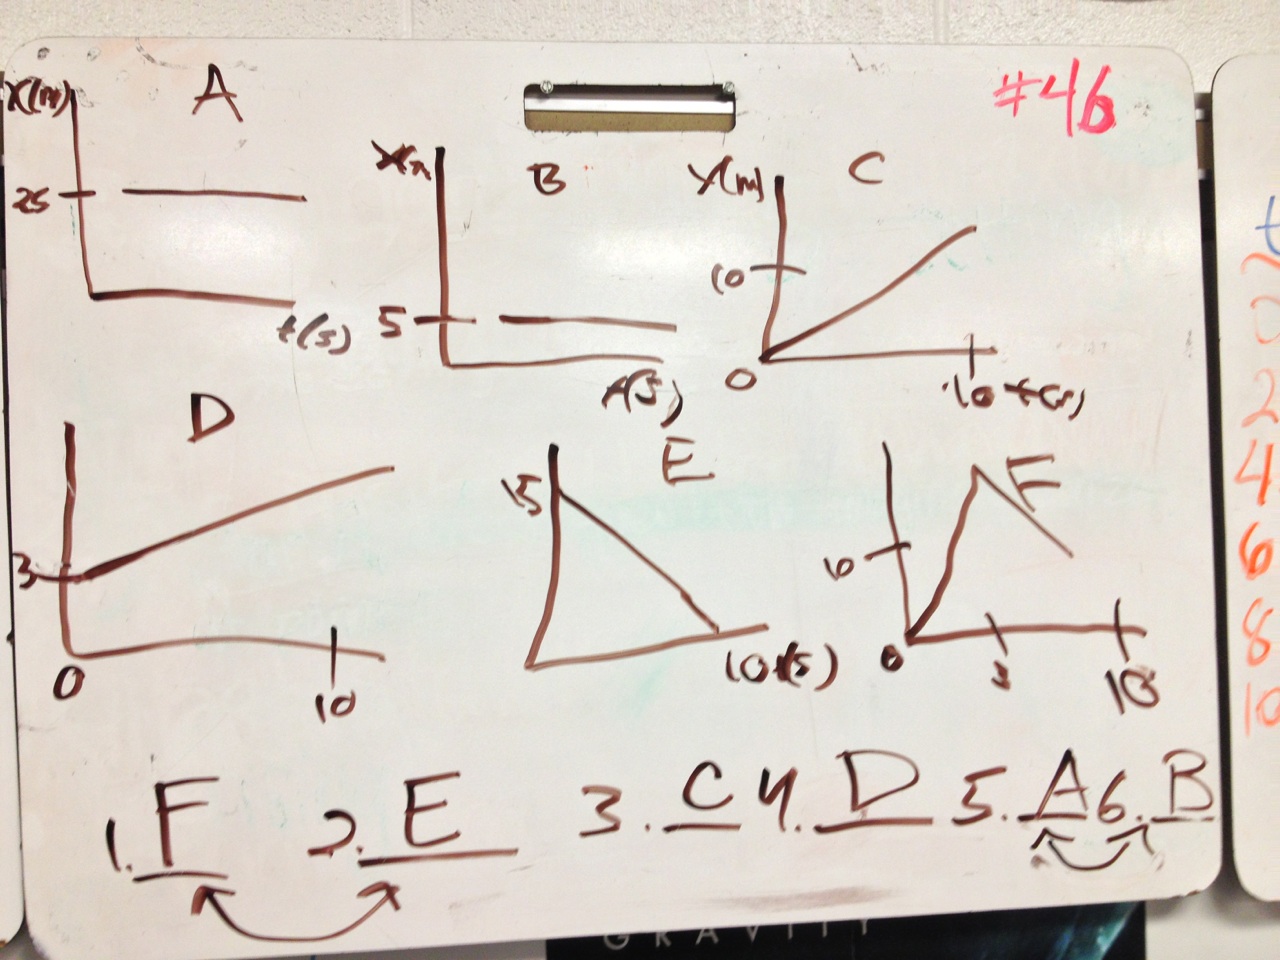 #46
A
X(m)
25
t(s)
B
5
C
10
0
10 t(s)
D
3
0
10
E
15
10 t(s)
F
0
10
1. F 2. E 3. C 4. D 5. A 6. B
t
0
2
4
6
8
10
GRAVITY